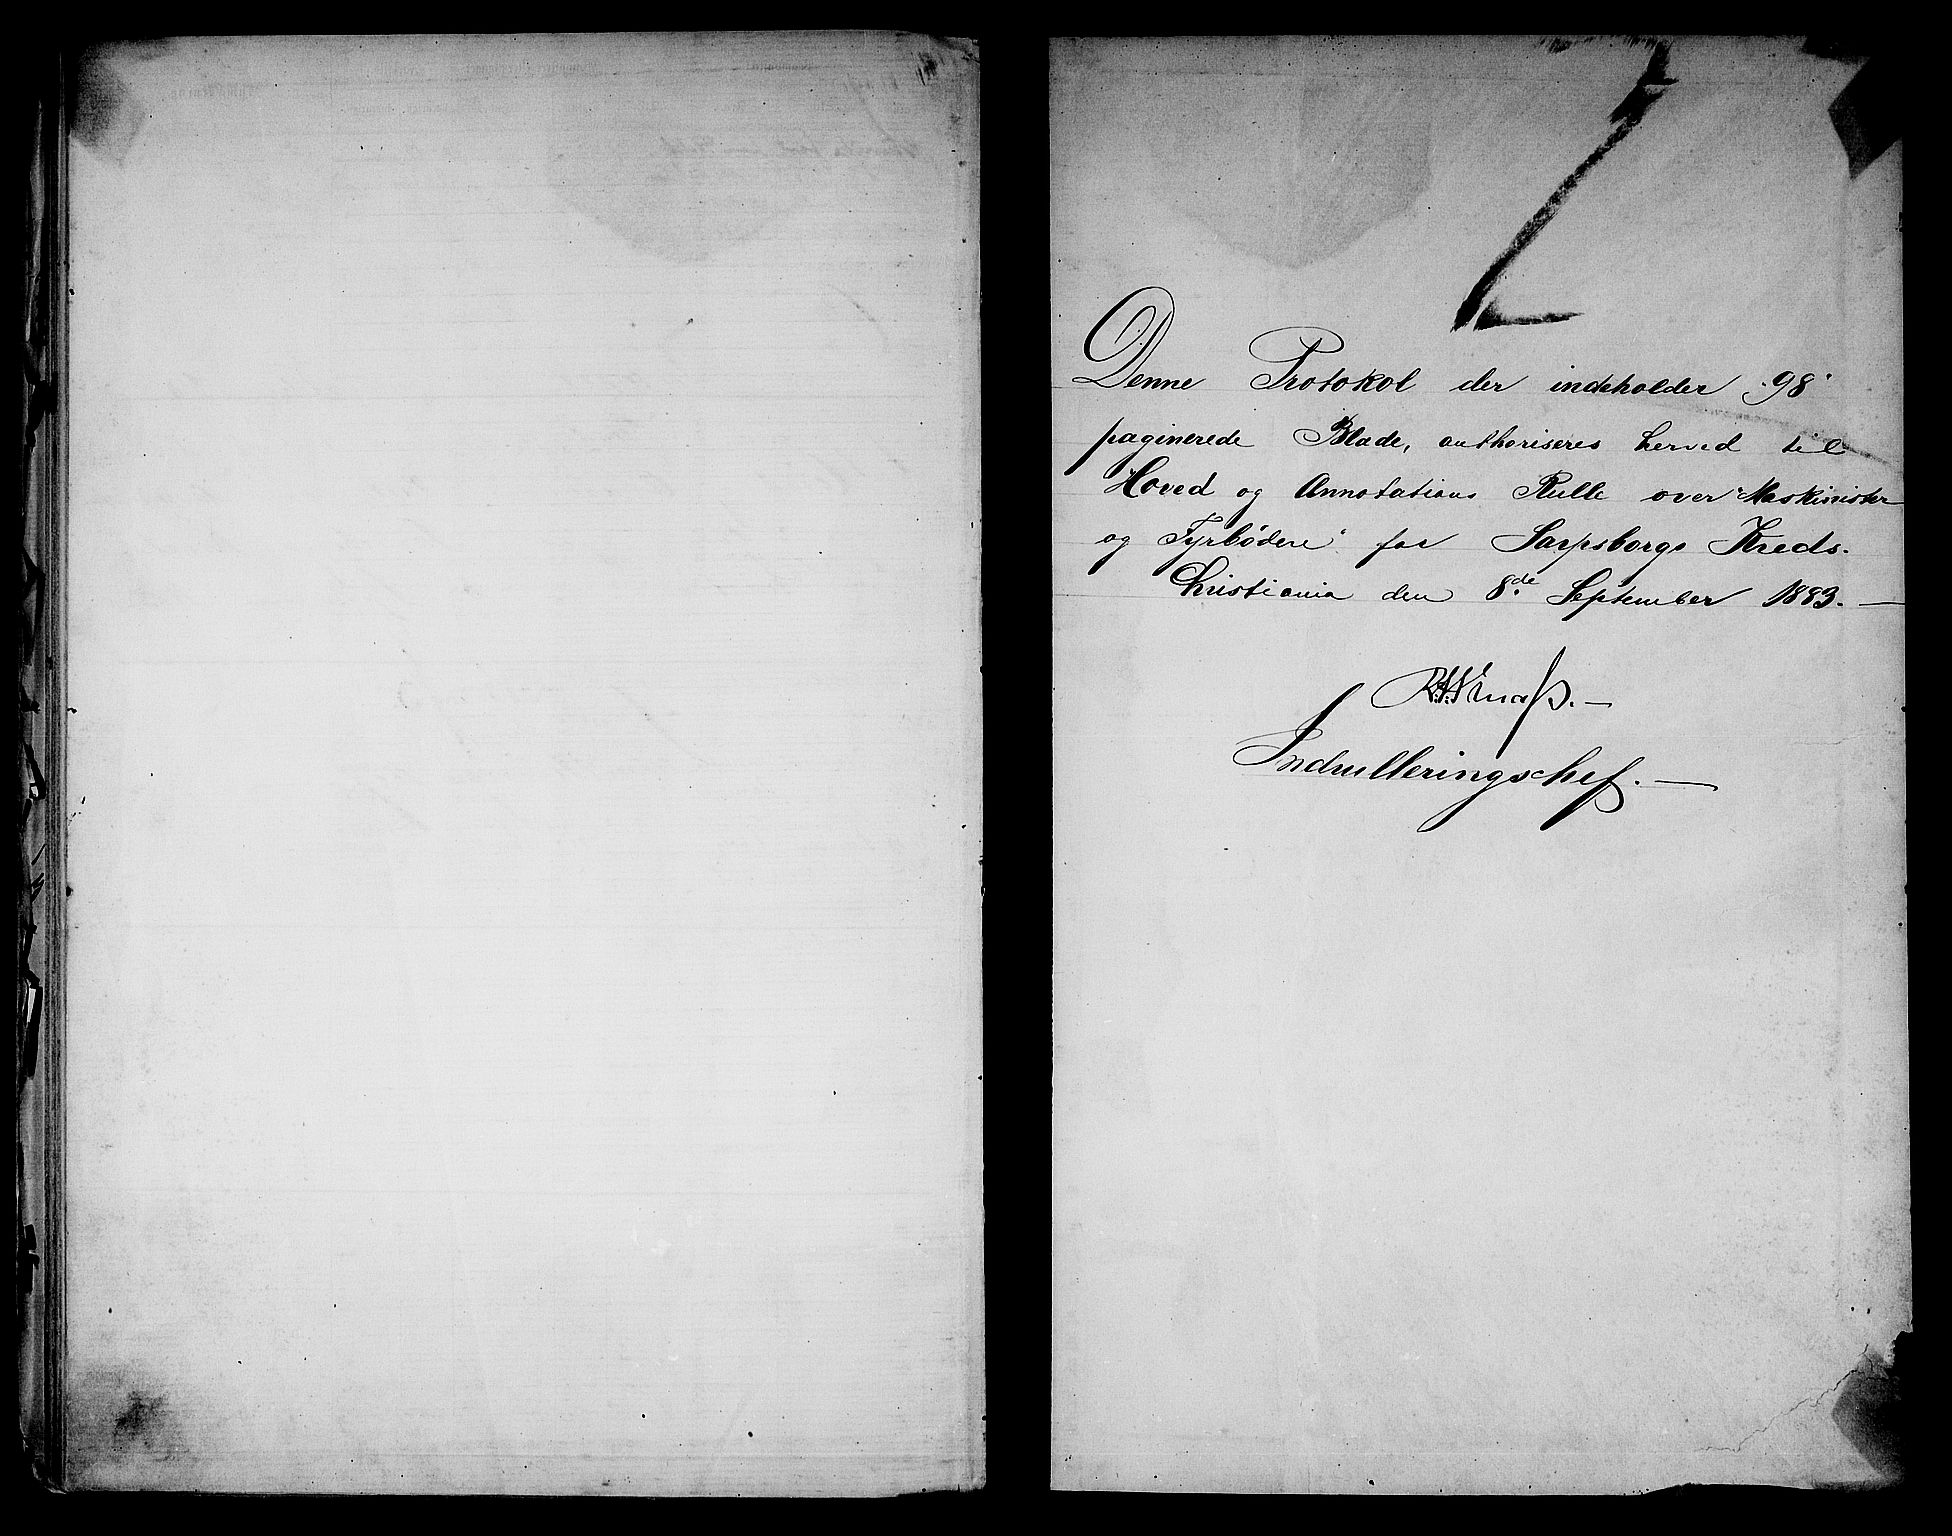 Denne Protokol der indeholder 98
paginerede Blade, authoriseres herved til
Hoved og Annotations Rulle over "Maskinister
og Fyrbødere" for Sarpsborgs Kreds.
Christiania den 8de September 1883. —
Indrulleringschef. —